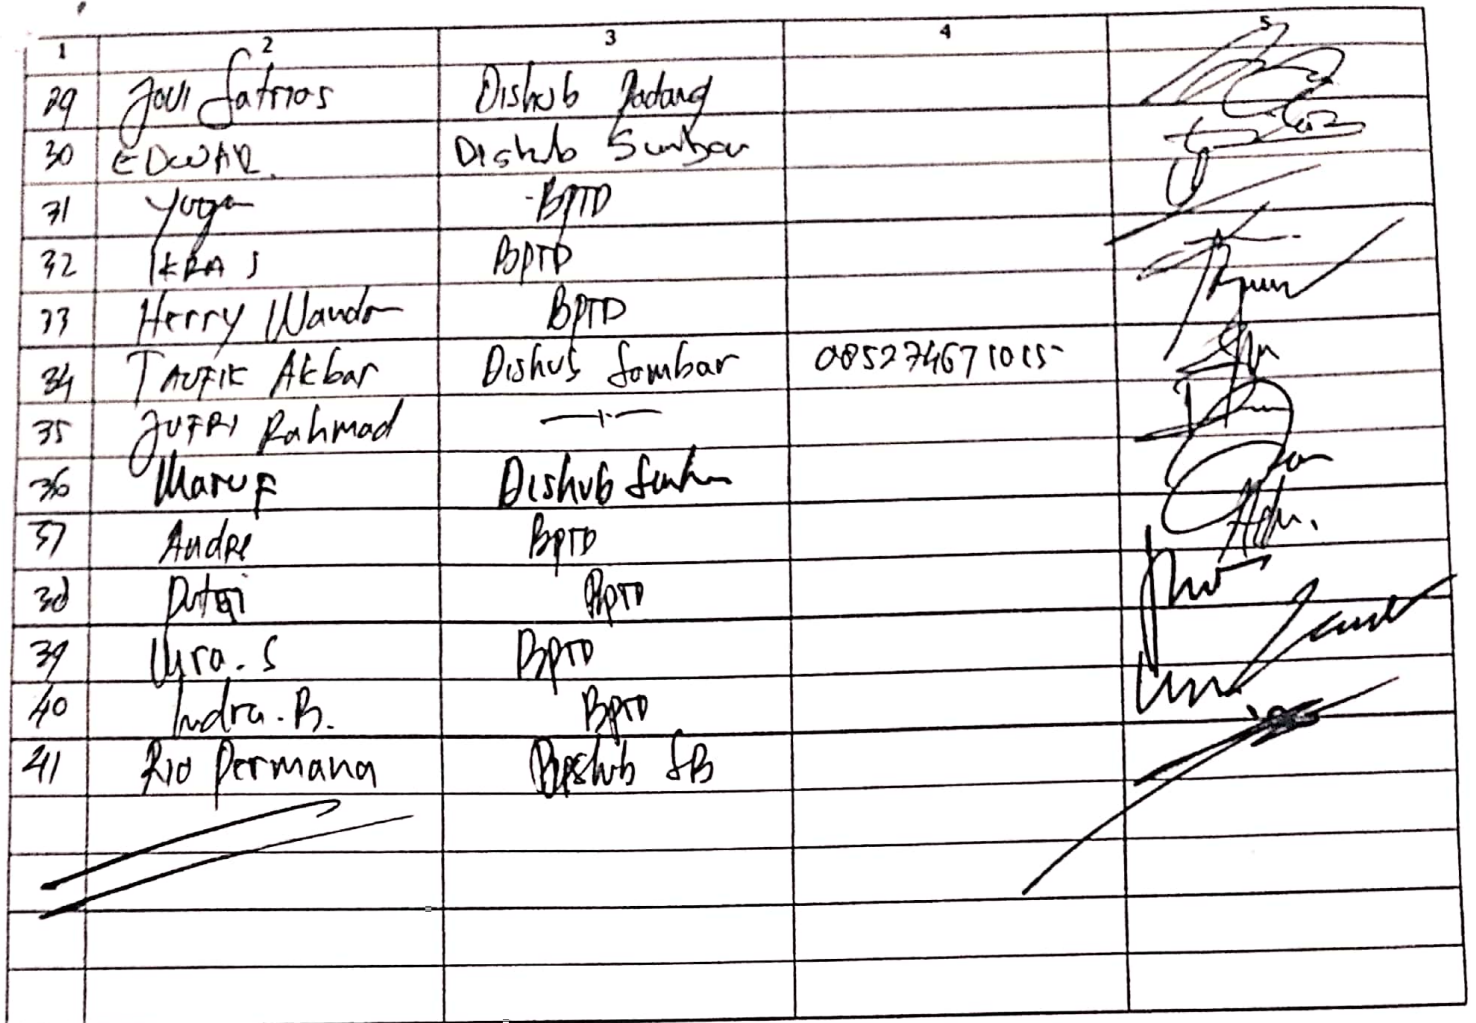 1 2 3 4 5
29 Jovi Satrias Dishub Padang
30 EDWAR. Dishub Sumbar
31 Yoga BPTD
32 IKRA S BPTD
33 Herry Wanda BPTD
34 TAUFIK Akbar Dishub Sumbar 085274671015
35 JUFRI Rahmad —"—
36 Maruf Dishub Sumbar
37 Andre BPTD
38 Putri BPTD
39 Vira. S BPTD
40 Indra. B. BPTD
41 Rio Permana Dishub SB